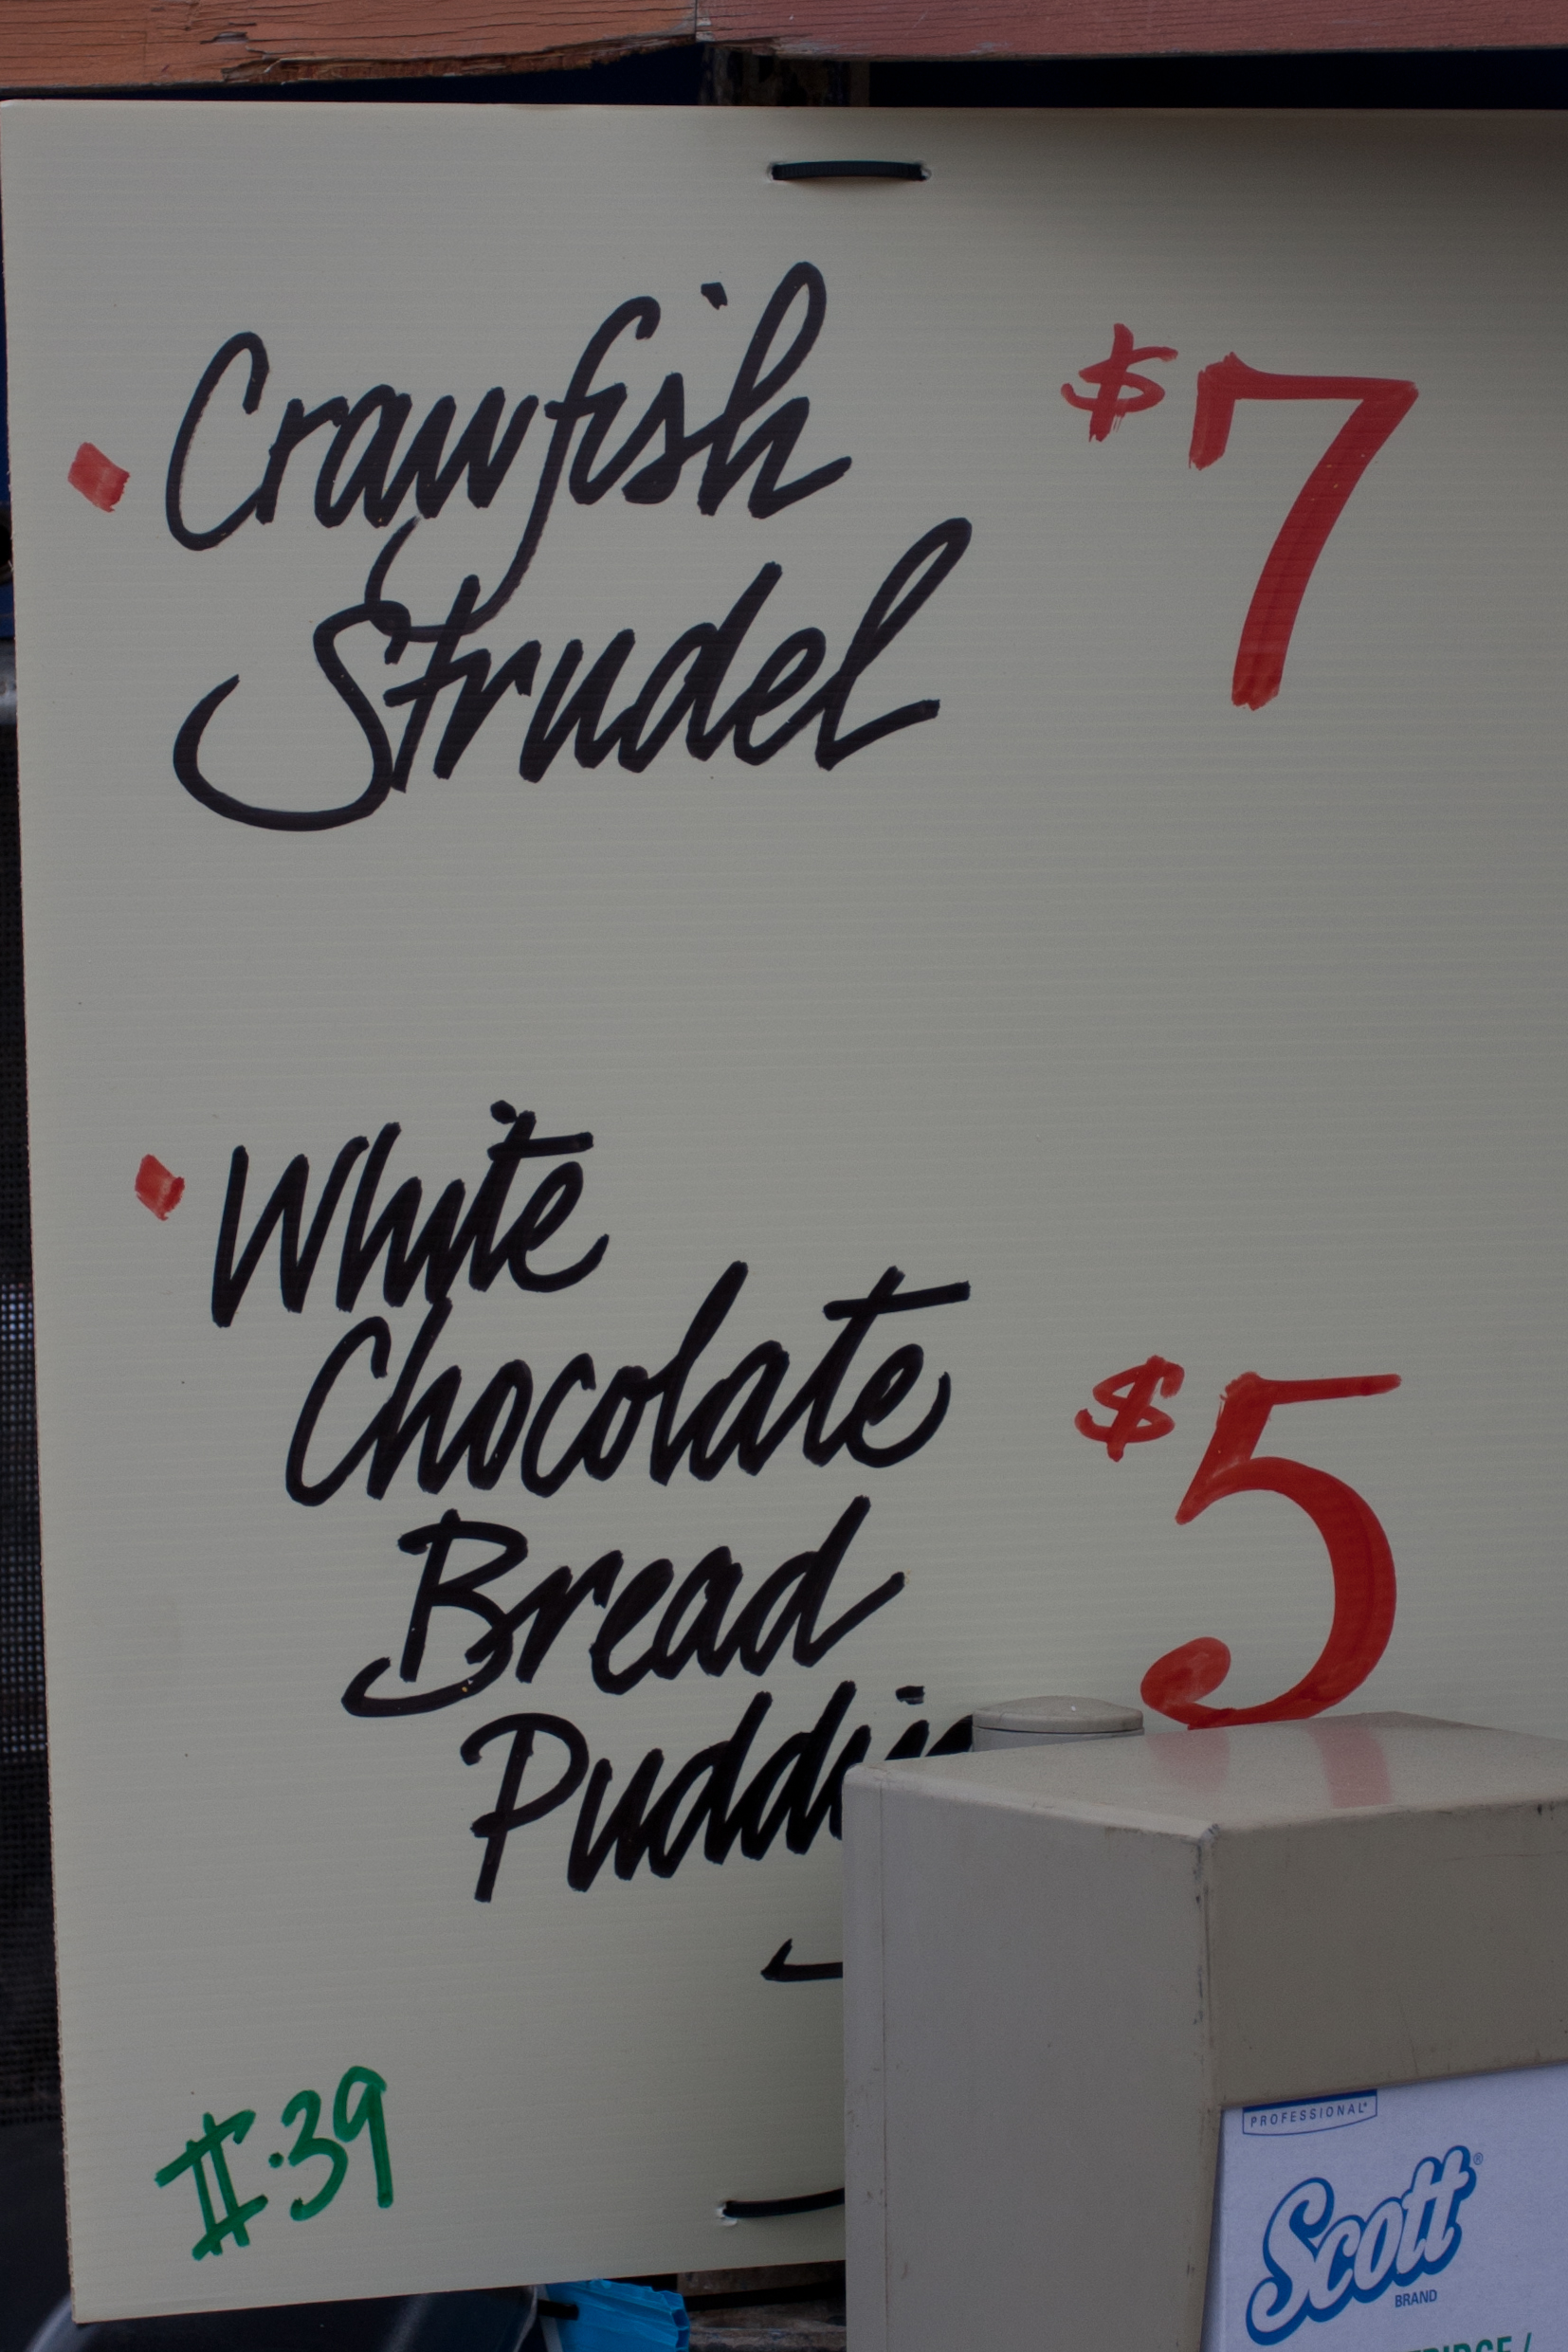 Crawfish
Strudel
$7
White
Chocolate
Bread
$5
#.39
PROFESSIONAL
Scott®
BRAND